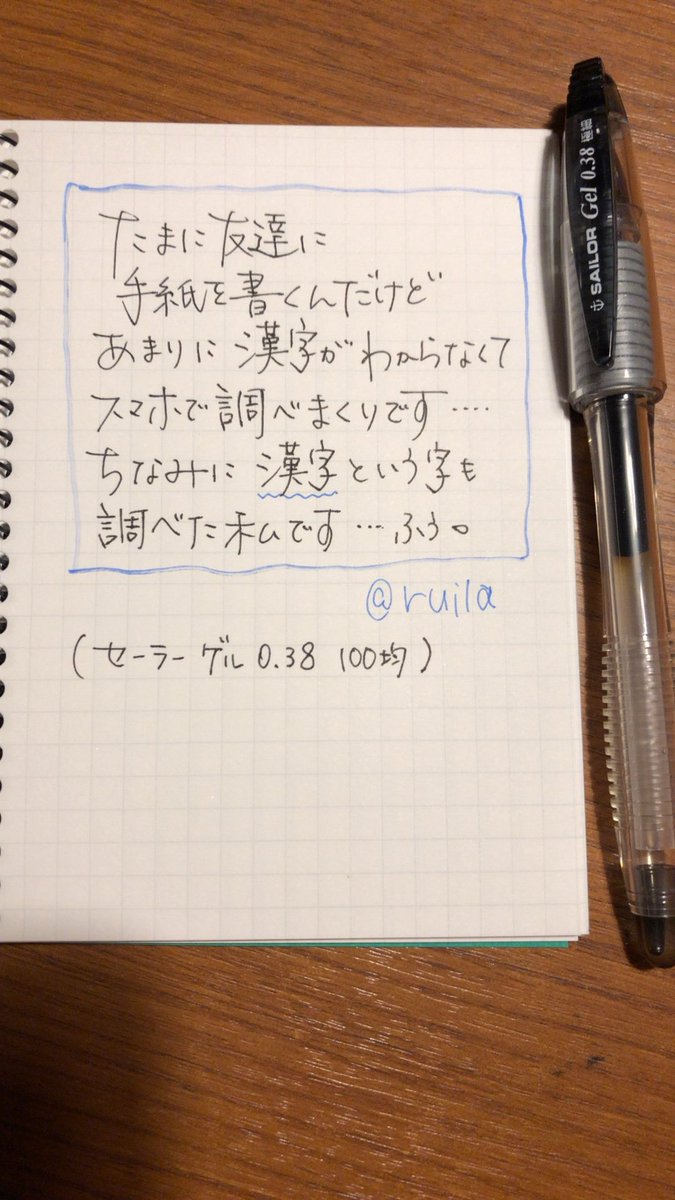 たまに友達に
手紙を書くんだけど
あまりに漢字がわからなくて
スマホで調べまくりです‥‥
ちなみに漢字という字も
調べた私です…ふぅ。
@ruila
(セーラー ゲル 0.38 100均)
SAILOR Gel 0.38 極細